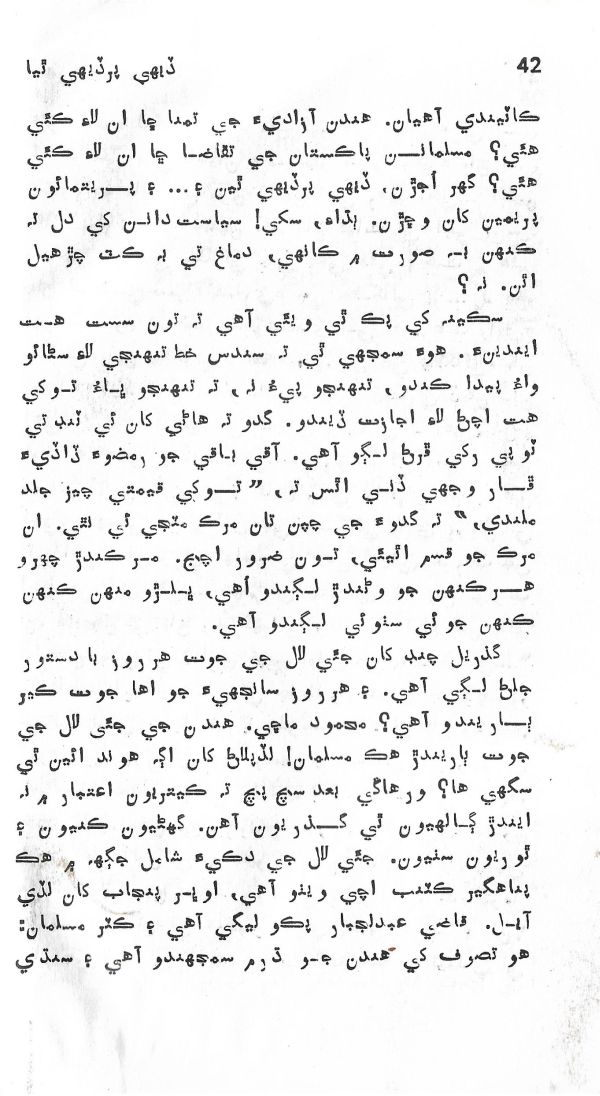 42
ڏيهي پرڏيهي ٿيا
ڪاٽيندي آهيان. هندن آزاديءَ جي تمنا ڇا ان لاءِ ڪئي
هئي؟ مسلمانن پاڪستان جي تقاضا ڇا ان لاءِ ڪئي
هئي؟ گهر اُجڙن، ڏيهي پرڏيهي ٿين ۽... ۽ پريتمائون
پريمين کان وڇڙن. ٻڌاءِ، سکي! سياستدانن کي دل ته
ڪنهن به صورت ۾ ڪانهي، دماغ تي به ڪٽ چڙهيل
اٿن. نه؟
سڪينه کي پڪ ٿي ويئي آهي ته تون سست هت
ايندينءَ. هوءَ سمجهي ٿي ته سندس خط تنهنجي لاءِ سڻائو
واءُ پيدا ڪندو، تنهنجو پيءُ نه، ته تنهنجو ڀاءُ توکي
هت اچڻ لاءِ اجازت ڏيندو. گدو ته هاڻي کان ئي ٽٻ تي
ٽوپي رکي ڦرڻ لڳو آهي. آقي باقي جو رمضوءَ ڏاڏيءَ
ڦار وجهي ڏني اٿس ته، ”توکي قيمتي چيز جلد
ملندي،“ ته گدوءَ جي چپن تان مرڪ مٽجي ئي نٿي. ان
مرڪ جو قسم اٿيئي، تون ضرور اچج. مرڪندڙ چهرو
هرڪنهن جو وڻندڙ لڳندو آهي، ڀلڙو منهن ڪنهن
ڪنهن جو ئي سٺو ئي لڳندو آهي.
گذريل چنڊ کان جئي لال جي جوت هرروز با دستور
جلڻ لڳي آهي. ۽ هرروز سانجهيءَ جو اها جوت ڪير
ٻاريندو آهي؟ محمود ماڇي. هندن جي جئي لال جي
جوت ٻاريندڙ هڪ مسلمان! لڏپلاڻ کان اڳ هوند ائين ٿي
سگهي ها؟ ورهاڱي بعد سچ پچ ته ڪيتريون اعتبار ۾ نه
ايندڙ ڳالهيون ٿي گذريون آهن. گهڻيون ڪنيون ۽
ٿوريون سنيون. جئي لال جي دڪيءَ شامل جڳهه ۾ هڪ
پناهگير ڪٽنب اچي ويٺو آهي، اوڀر پنجاب کان لڏي
آيل. قاضي عبدالجبار پڪو ليگي آهي ۽ ڪٽر مسلمان:
هو تصوف کي هندن جو ڌرم سمجهندو آهي ۽ سنڌي